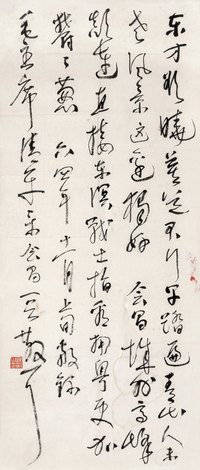 东方欲晓莫道君行早踏遍青山人未
老风景这边独好 会昌城外高峰
颠连直接东溟战士指看南粤更加
郁々葱々 六四年十一月上旬敬録
毛主席清平乐会昌一首 散耳